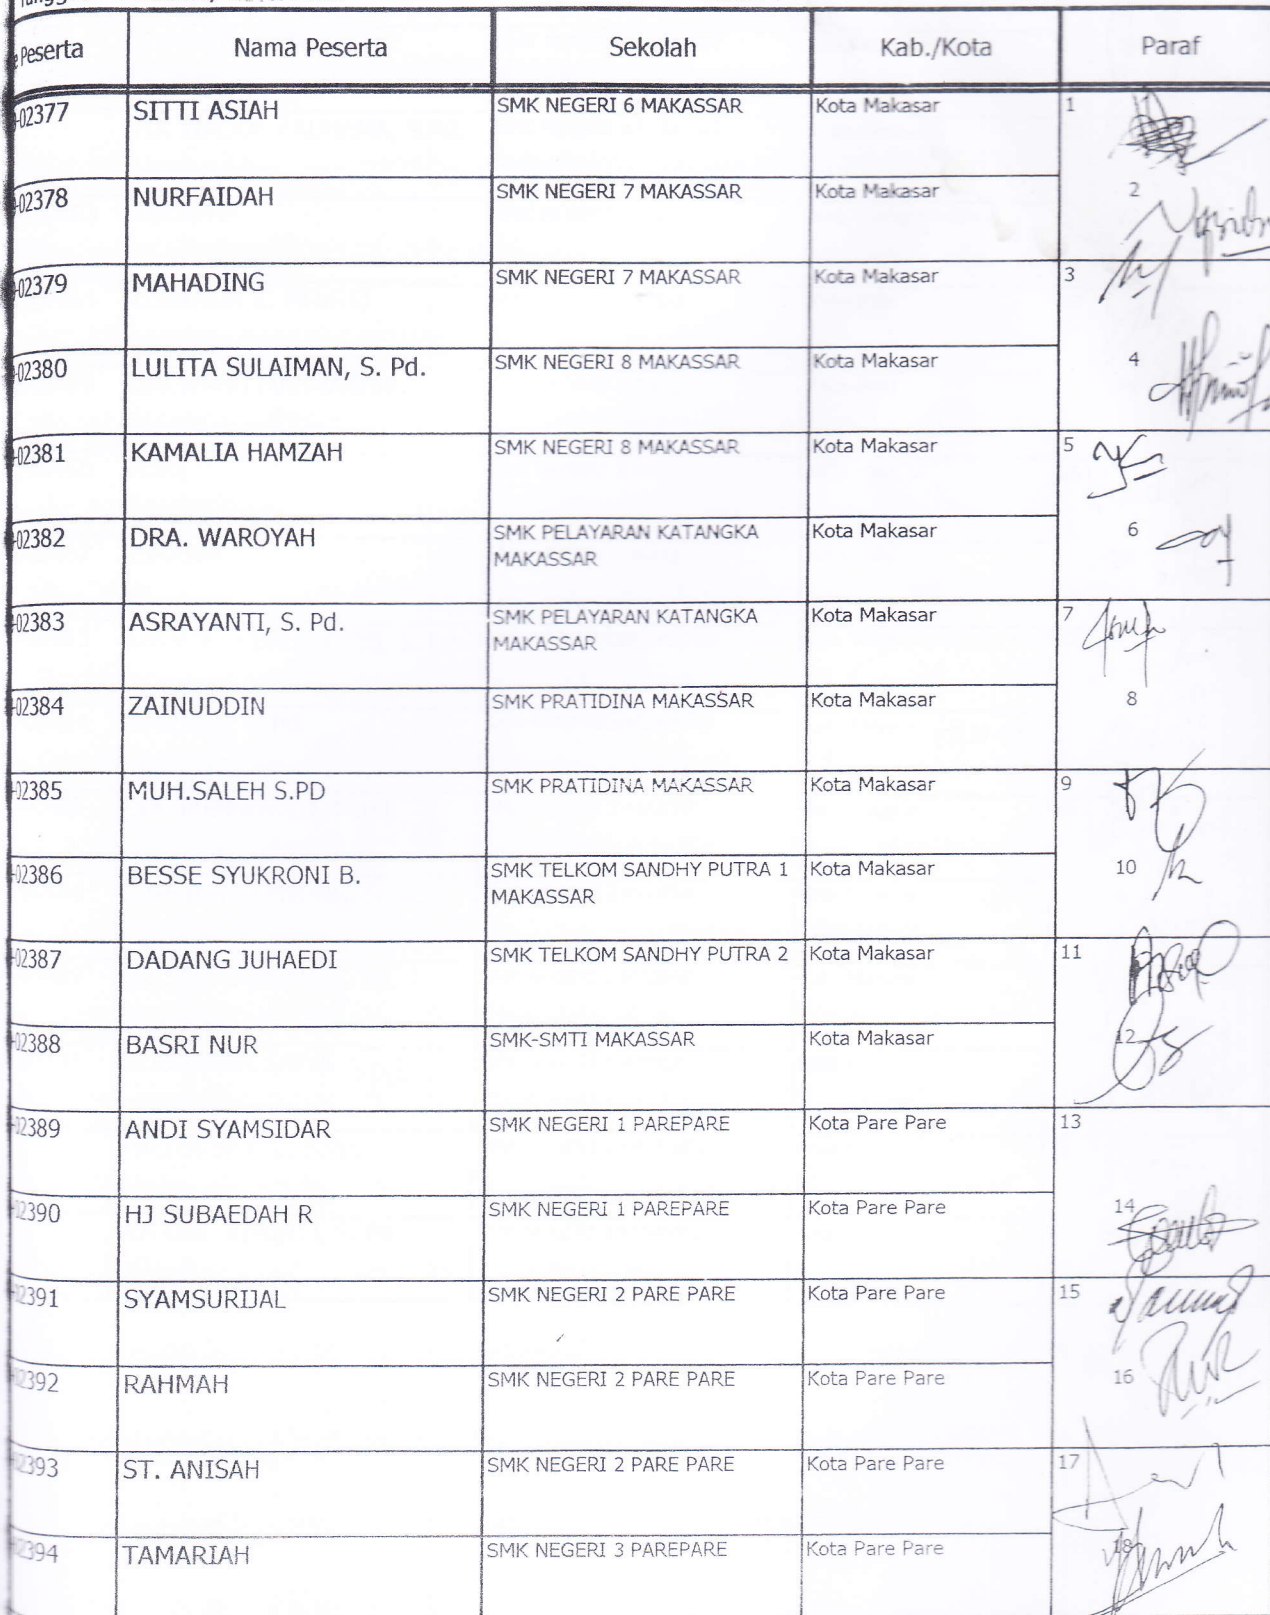 Peserta Nama Peserta Sekolah Kab./Kota Paraf
02377 SITTI ASIAH SMK NEGERI 6 MAKASSAR Kota Makasar 1
02378 NURFAIDAH SMK NEGERI 7 MAKASSAR Kota Makasar 2
02379 MAHADING SMK NEGERI 7 MAKASSAR Kota Makasar 3
02380 LULITA SULAIMAN, S. Pd. SMK NEGERI 8 MAKASSAR Kota Makasar 4
02381 KAMALIA HAMZAH SMK NEGERI 8 MAKASSAR Kota Makasar 5
02382 DRA. WAROYAH SMK PELAYARAN KATANGKA Kota Makasar 6
MAKASSAR
02383 ASRAYANTI, S. Pd. SMK PELAYARAN KATANGKA Kota Makasar 7
MAKASSAR
02384 ZAINUDDIN SMK PRATIDINA MAKASSAR Kota Makasar 8
02385 MUH.SALEH S.PD SMK PRATIDINA MAKASSAR Kota Makasar 9
02386 BESSE SYUKRONI B. SMK TELKOM SANDHY PUTRA 1 Kota Makasar 10
MAKASSAR
02387 DADANG JUHAEDI SMK TELKOM SANDHY PUTRA 2 Kota Makasar 11
02388 BASRI NUR SMK-SMTI MAKASSAR Kota Makasar 12
02389 ANDI SYAMSIDAR SMK NEGERI 1 PAREPARE Kota Pare Pare 13
02390 HJ SUBAEDAH R SMK NEGERI 1 PAREPARE Kota Pare Pare 14
02391 SYAMSURIJAL SMK NEGERI 2 PARE PARE Kota Pare Pare 15
02392 RAHMAH SMK NEGERI 2 PARE PARE Kota Pare Pare 16
02393 ST. ANISAH SMK NEGERI 2 PARE PARE Kota Pare Pare 17
02394 TAMARIAH SMK NEGERI 3 PAREPARE Kota Pare Pare 18